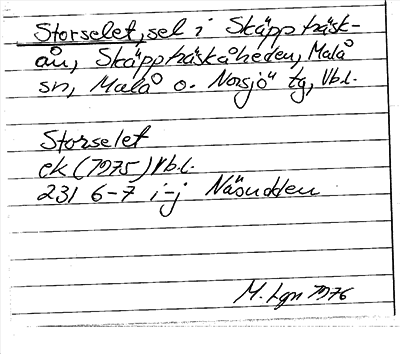 Storselet, sel i Skäppträsk-
ån, Skäppträskåheden, Malå
sn, Malå o. Norsjö tg, Vb.l.
Storselet
ek (1975) Vb.l.
231 6-7 i-j Näsudden
M. Lgn 1976